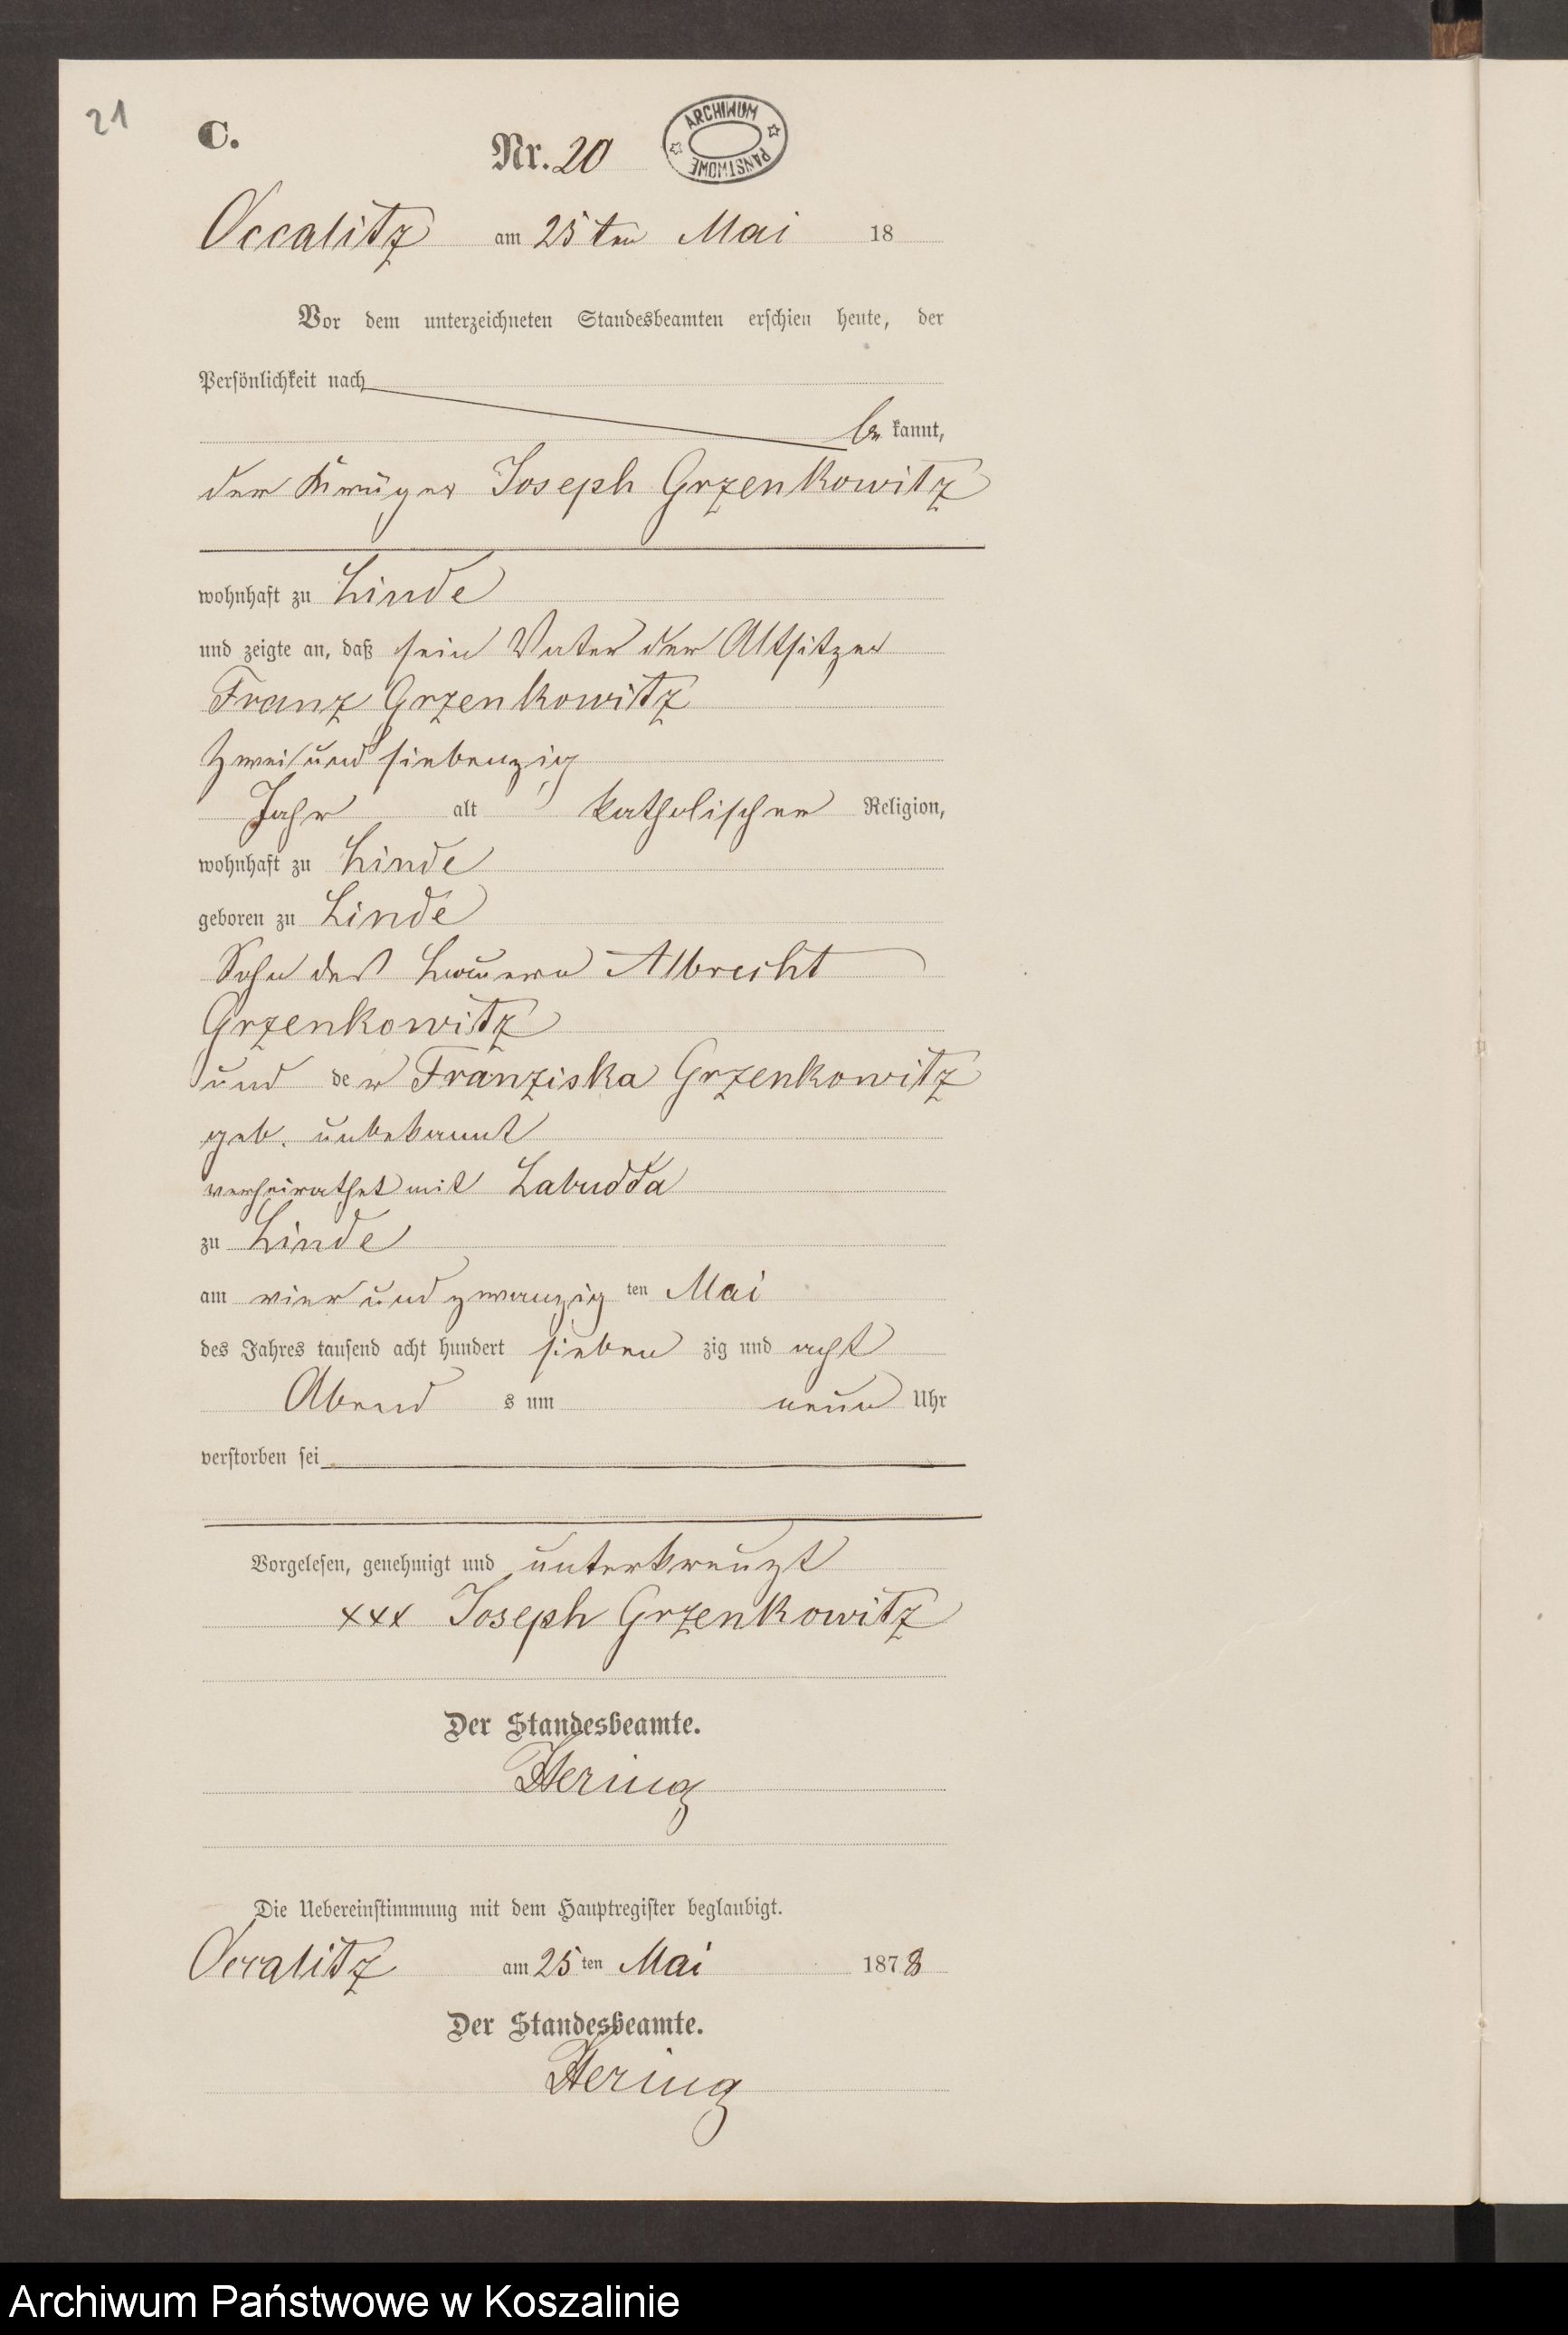 21
C.
Nr. 20
ARCHIWUM PAŃSTWOWE
Occalitz am 25ten Mai 18
Vor dem unterzeichneten Standesbeamten erschien heute, der
Persönlichkeit nach
be kannt,
der Krüger Joseph Grzenkowitz
wohnhaft zu Linde
und zeigte an, daß sein Vater der Altsitzer
Franz Grzenkowitz
zwei und siebenzig
Jahr alt katholischer Religion,
wohnhaft zu Linde
geboren zu Linde
Sohn des Bauern Albrecht
Grzenkowitz
und der Franziska Grzenkowitz
geb. unbekannt
verheirathet mit Labudda
zu Linde
am vier und zwanzig ten Mai
des Jahres tausend acht hundert sieben zig und acht
Abend s um neun Uhr
verstorben sei
Vorgelesen, genehmigt und unterkreuzt
xxx Joseph Grzenkowitz
Der Standesbeamte.
Hering
Die Uebereinstimmung mit dem Hauptregister beglaubigt.
Occalitz am 25 ten Mai 1878
Der Standesbeamte.
Hering
Archiwum Państwowe w Koszalinie